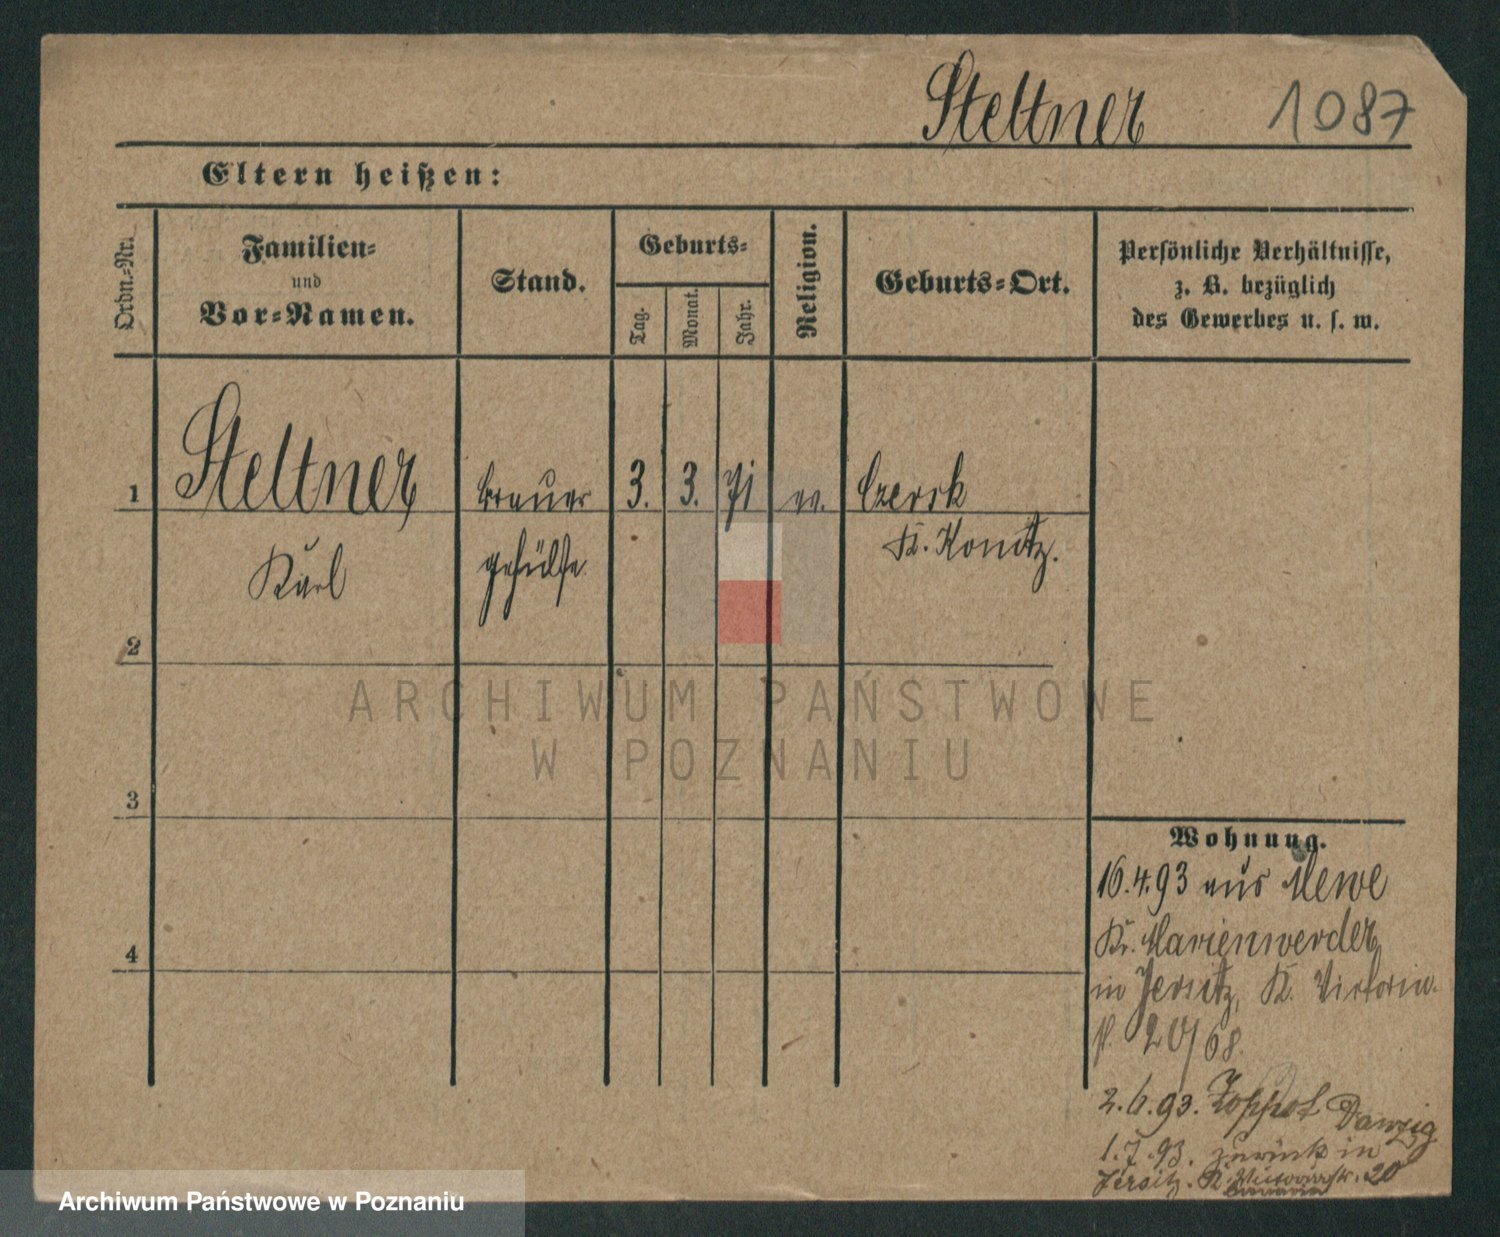 Steltner 1087
Eltern heißen:
Ordn.-Nr.
Familien-
und
Vor-Namen.
Stand.
Geburts-
Tag.
Monat.
Jahr.
Religion.
Geburts-Ort.
Persönliche Verhältnisse,
z. B. bezüglich
des Gewerbes u. s. w.
1 Steltner Brauer 3. 3. 71 ev. Czersk
Karl gehülfe Kr. Konitz.
2
3
4
Wohnung.
16.4.93 aus Mewe
Kr. Marienwerder
in Jersitz, K. Victoria
20/68
2.6.93. Zoppot Danzig
1.7.93. zurück in
Jersitz. K. 20
ARCHIWUM PAŃSTWOWE
W POZNANIU
Archiwum Państwowe w Poznaniu